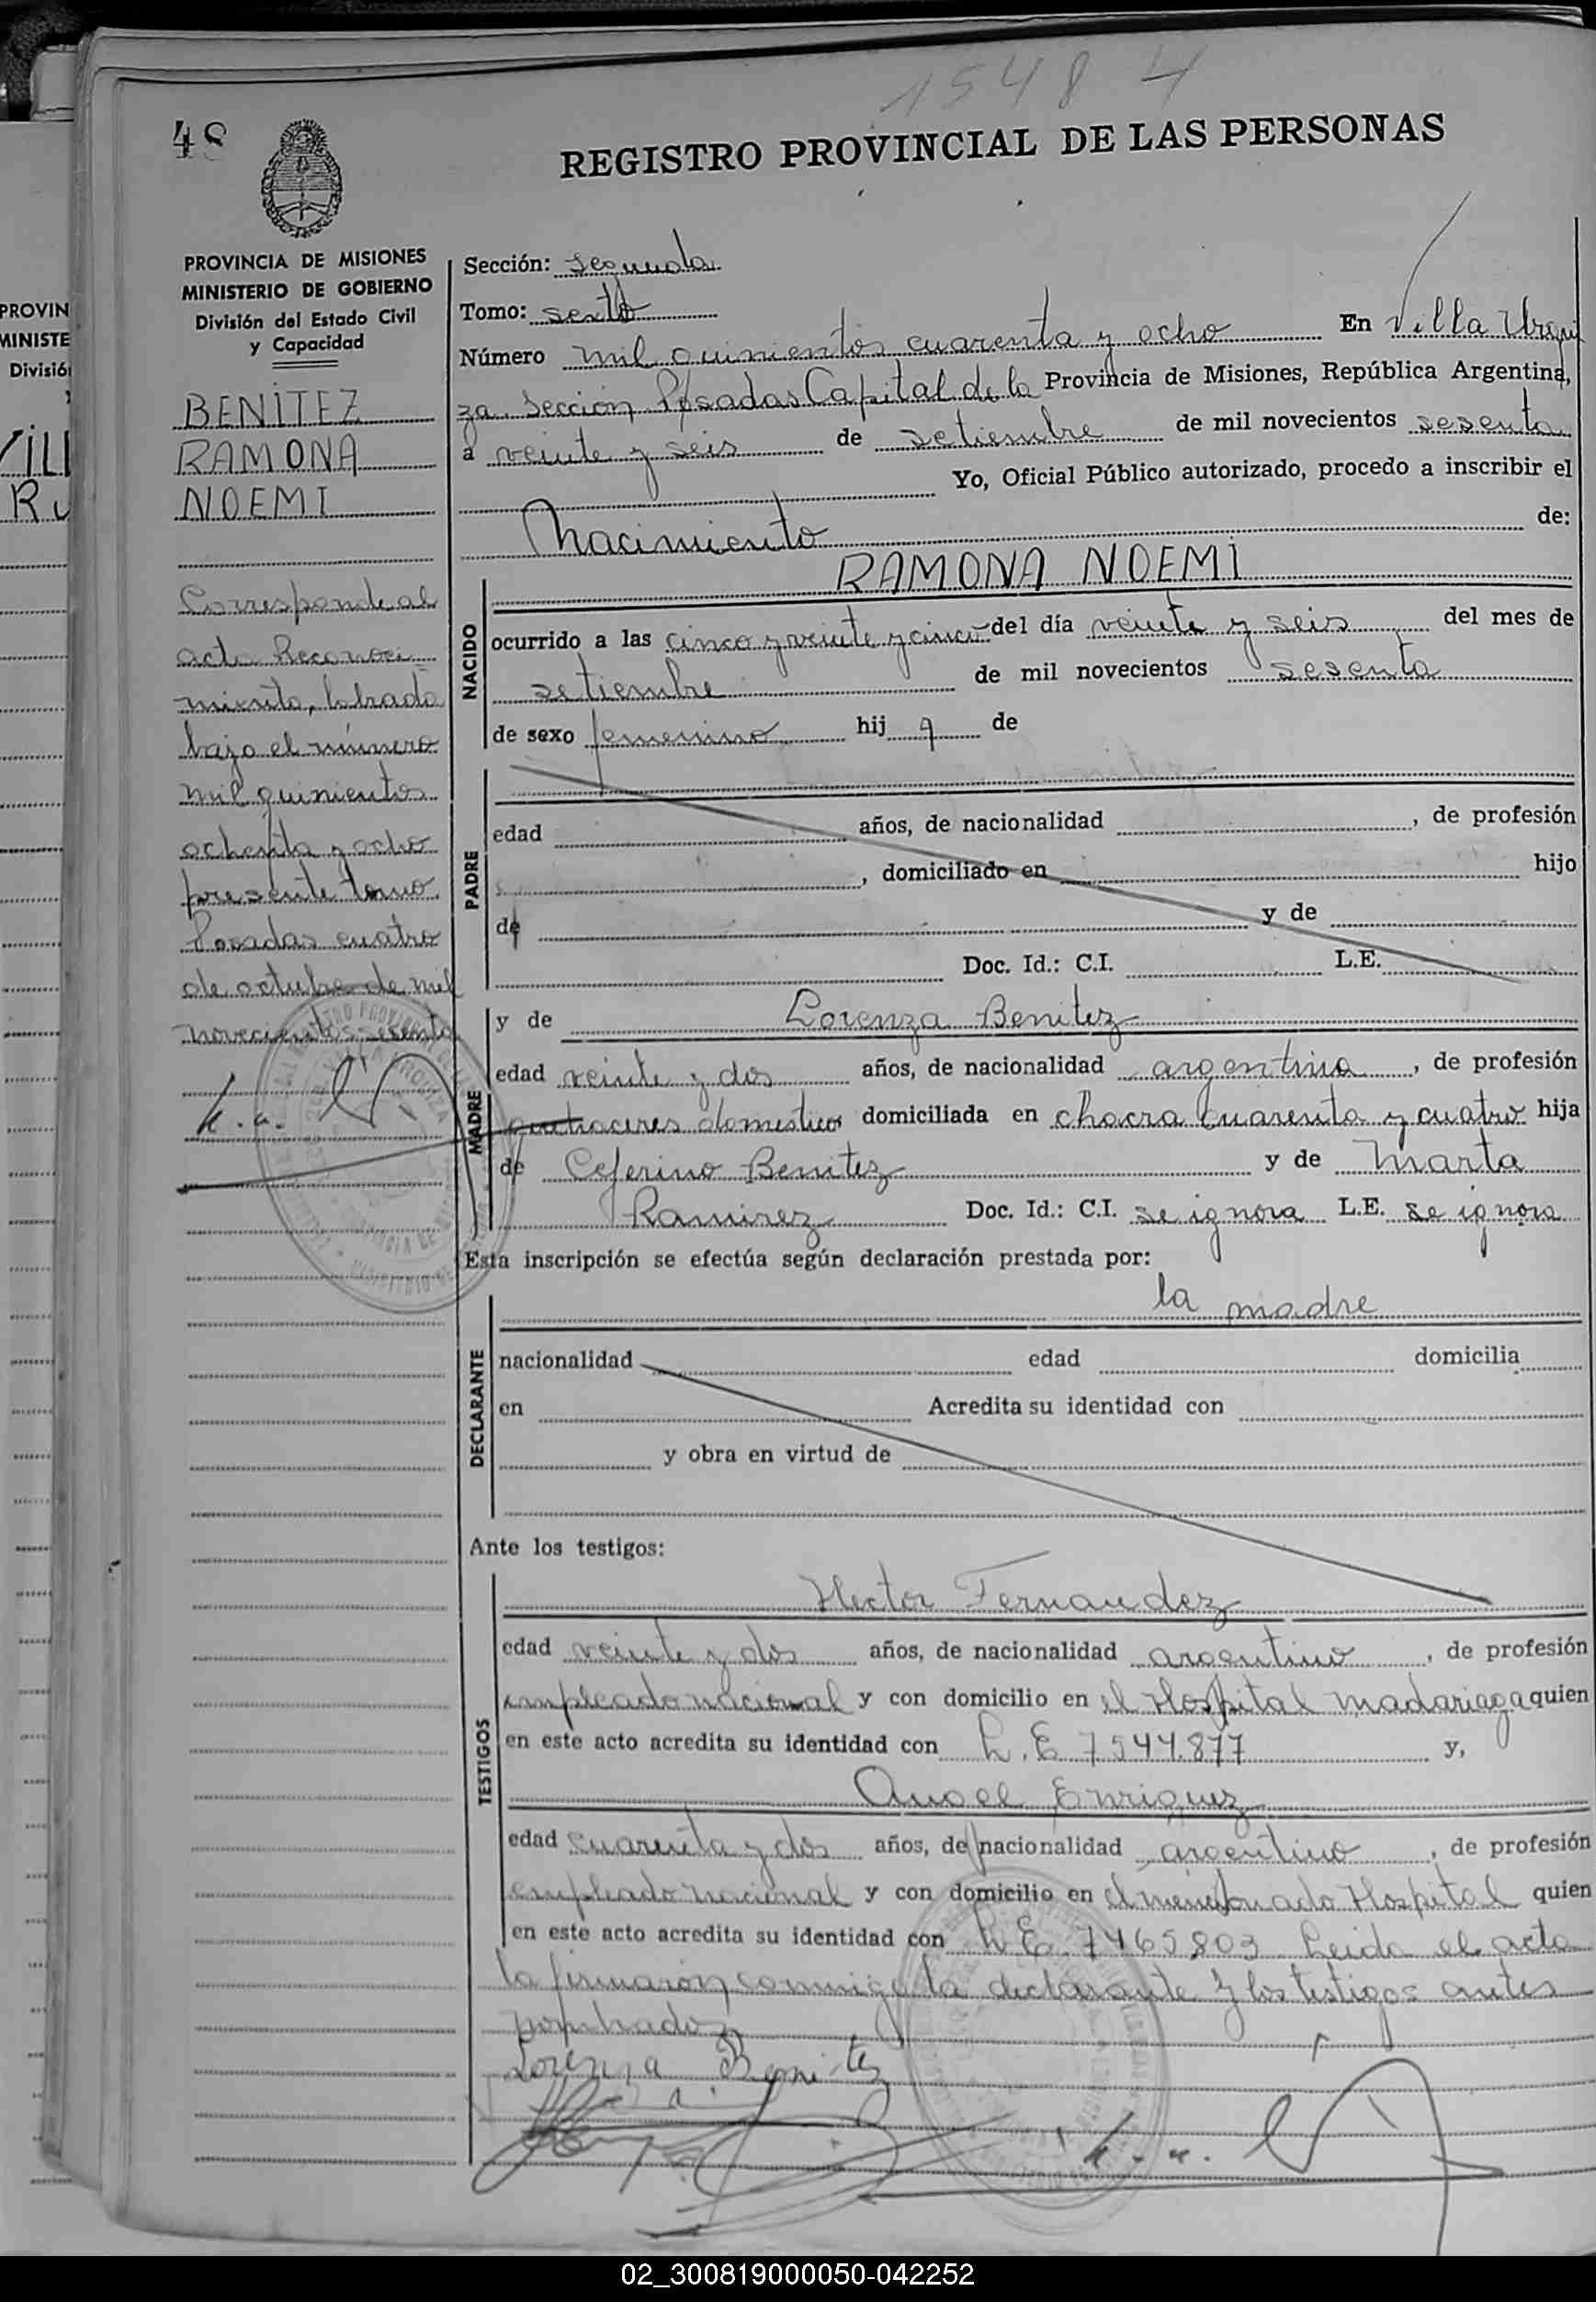 1548 4
48
REGISTRO PROVINCIAL DE LAS PERSONAS
PROVINCIA DE MISIONES
MINISTERIO DE GOBIERNO
División del Estado Civil
y Capacidad
BENITEZ
RAMONA
NOEMI
Corresponde al
acta Reconoci-
miento, labrada
bajo el número
mil quinientos
ochenta y ocho
presente tomo.
Posadas cuatro
de octubre de mil
novecientos sesenta
PROVIN
MINISTE
Divisió
VILL
RU
Sección: segunda
Tomo: sexto
Número mil quinientos cuarenta y ocho En Villa Urqui
za Sección Posadas Capital de la Provincia de Misiones, República Argentina,
a veinte y seis de setiembre de mil novecientos sesenta
Yo, Oficial Público autorizado, procedo a inscribir el
Nacimiento de:
RAMONA NOEMI
NACIDO
ocurrido a las cinco y veinte y cinco del día veinte y seis del mes de
setiembre de mil novecientos sesenta
de sexo femenino hij a de
PADRE
edad años, de nacionalidad , de profesión
, domiciliado en hijo
de y de
Doc. Id.: C.I. L.E.
MADRE
y de Lorenza Benitez
edad veinte y dos años, de nacionalidad argentina , de profesión
quehaceres domesticos domiciliada en chacra cuarenta y cuatro hija
de Ceferino Benitez y de Marta
Ramirez Doc. Id.: C.I. se ignora L.E. se ignora
Esta inscripción se efectúa según declaración prestada por:
la madre
DECLARANTE
nacionalidad edad domicilia
en Acredita su identidad con
y obra en virtud de
Ante los testigos:
TESTIGOS
Hector Fernandez
edad veinte y dos años, de nacionalidad argentino , de profesión
empleado nacional y con domicilio en el Hospital Madariaga quien
en este acto acredita su identidad con L.E 7544.877 y,
Angel Enriquez
edad cuarenta y dos años, de nacionalidad argentino , de profesión
empleado nacional y con domicilio en el mencionado Hospital quien
en este acto acredita su identidad con L.E. 7465803 Leida el acta
la firmaron conmigo la declarante y los testigos antes
nombrados
Lorenza Benitez
02_300819000050-042252